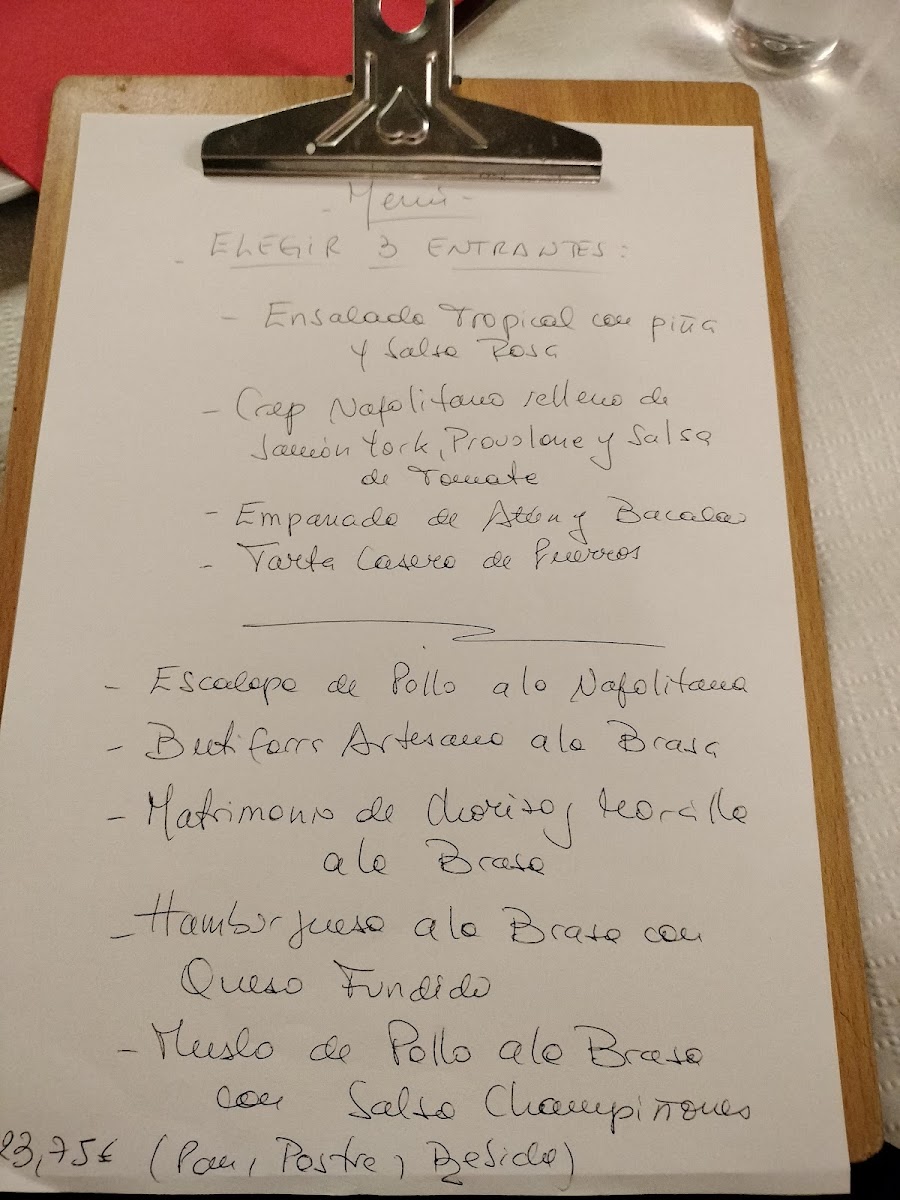 - Menú -
- ELEGIR 3 ENTRANTES:
- Ensalada Tropical con piña
y Salsa Rosa
- Crep Napolitano relleno de
Jamón York, Provolone y Salsa
de Tomate
- Empanada de Atún y Bacalao
- Tarta Casera de Puerros
- Escalopa de Pollo a la Napolitana
- Butifarra Artesana a la Brasa
- Matrimonio de Chorizo y Morcilla
a la Brasa
- Hamburguesa a la Brasa con
Queso Fundido
- Muslo de Pollo a la Brasa
con Salsa Champiñones
23,75€ (Pan, Postre, Bebida)